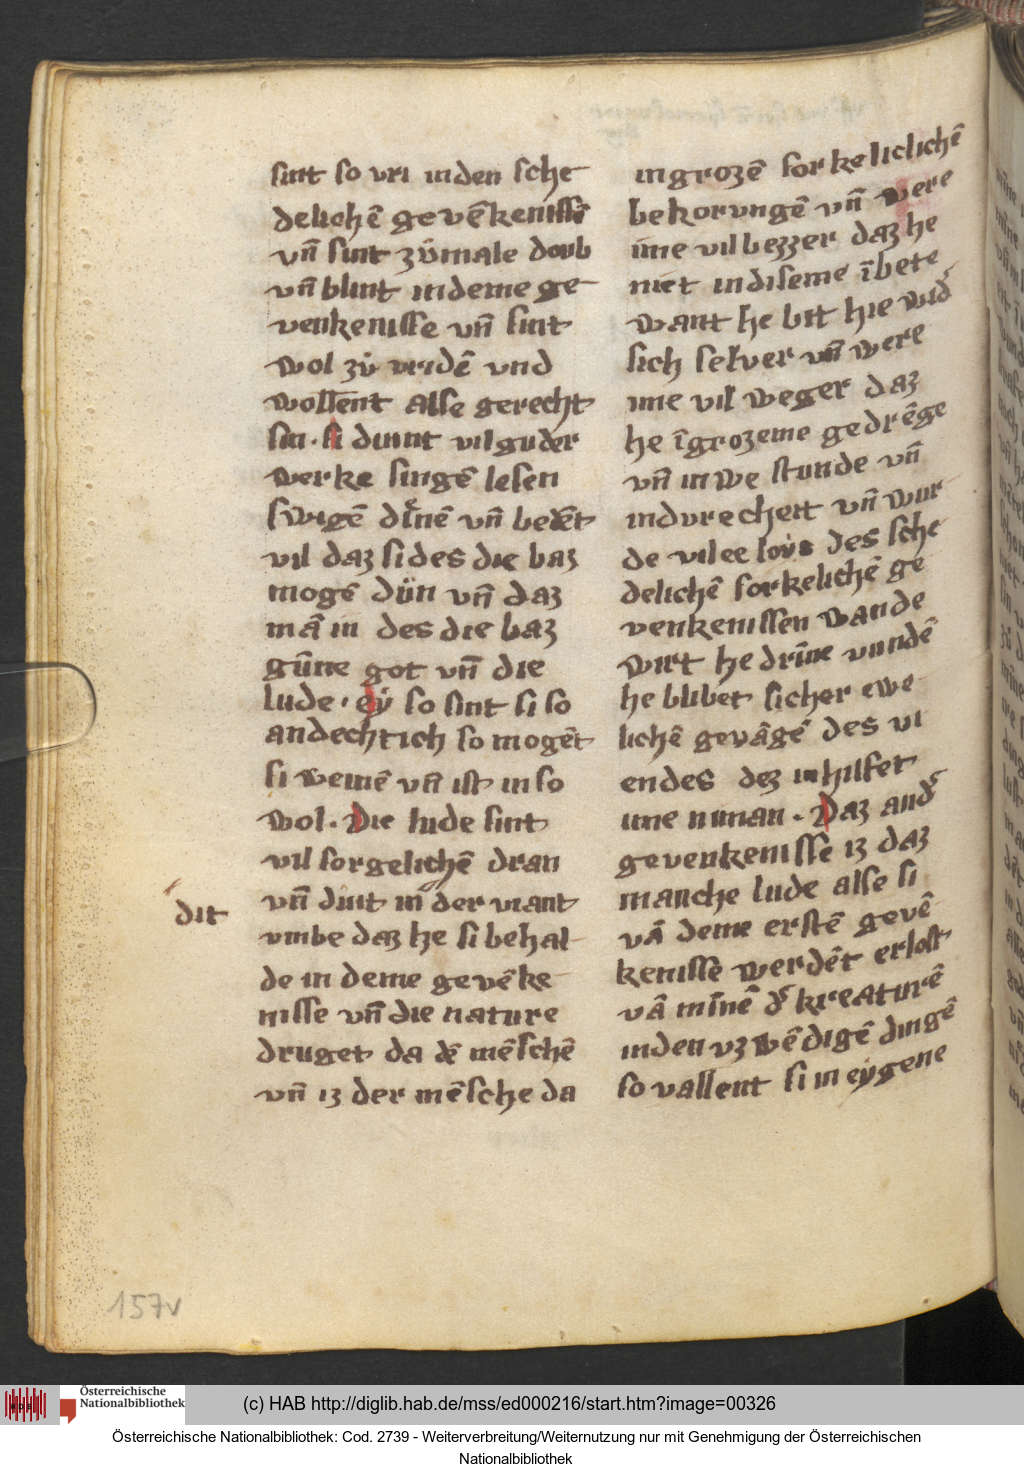 sint so vri inden sche
delichē gevēkenissē
vn̄ sint zůmale doub
vn̄ blint indeme ge
venkenisse vn̄ sint
wol zů vridē vnd
wollent alse gerecht
sin · si duint vil guder
werke singē lesen
swigē dīnē vn̄ bedēt
vil daz si des die baz
mogē dün vn̄ daz
mā in des die baz
gūne got vn̄ die
lude · ey so sint si so
andechtich so mogēt
si weinē vn̄ ist in so
wol · Die lude sint
vil sorgelichē dran
vn̄ duit in der viant
dit
vmbe daz he si behal
de in deme gevēke
nisse vn̄ die nature
druget da dē mēschē
vn̄ iz der mēsche da
ingrozē sorkeliclichē
bekorungē vn̄ were
ime vil bezzer daz he
niet indiseme ībete
want he bit hie wid
sich selver vn̄ were
ime vil weger daz
he īgrozeme gedrēge
vn̄ in we stunde vn̄
indvrecheit vn̄ wur
de vil ee loys des sche
delichē sorkelichē ge
venkenissen wande
wirt he drīne vundē
he blibet sicher ewe
lichē gevāgē des vi
endes dez in hilfet
ime niman · Daz and
gevenkenisse iz daz
manche lude alse si
vā deme erstē gevē
kenisse werdēt erlost
vā mīnē d kreaturē
inden vzwēdigē dingē
so vallent si in eygene
157v
Österreichische
Nationalbibliothek
(c) HAB http://diglib.hab.de/mss/ed000216/start.htm?image=00326
Österreichische Nationalbibliothek: Cod. 2739 - Weiterverbreitung/Weiternutzung nur mit Genehmigung der Österreichischen
Nationalbibliothek